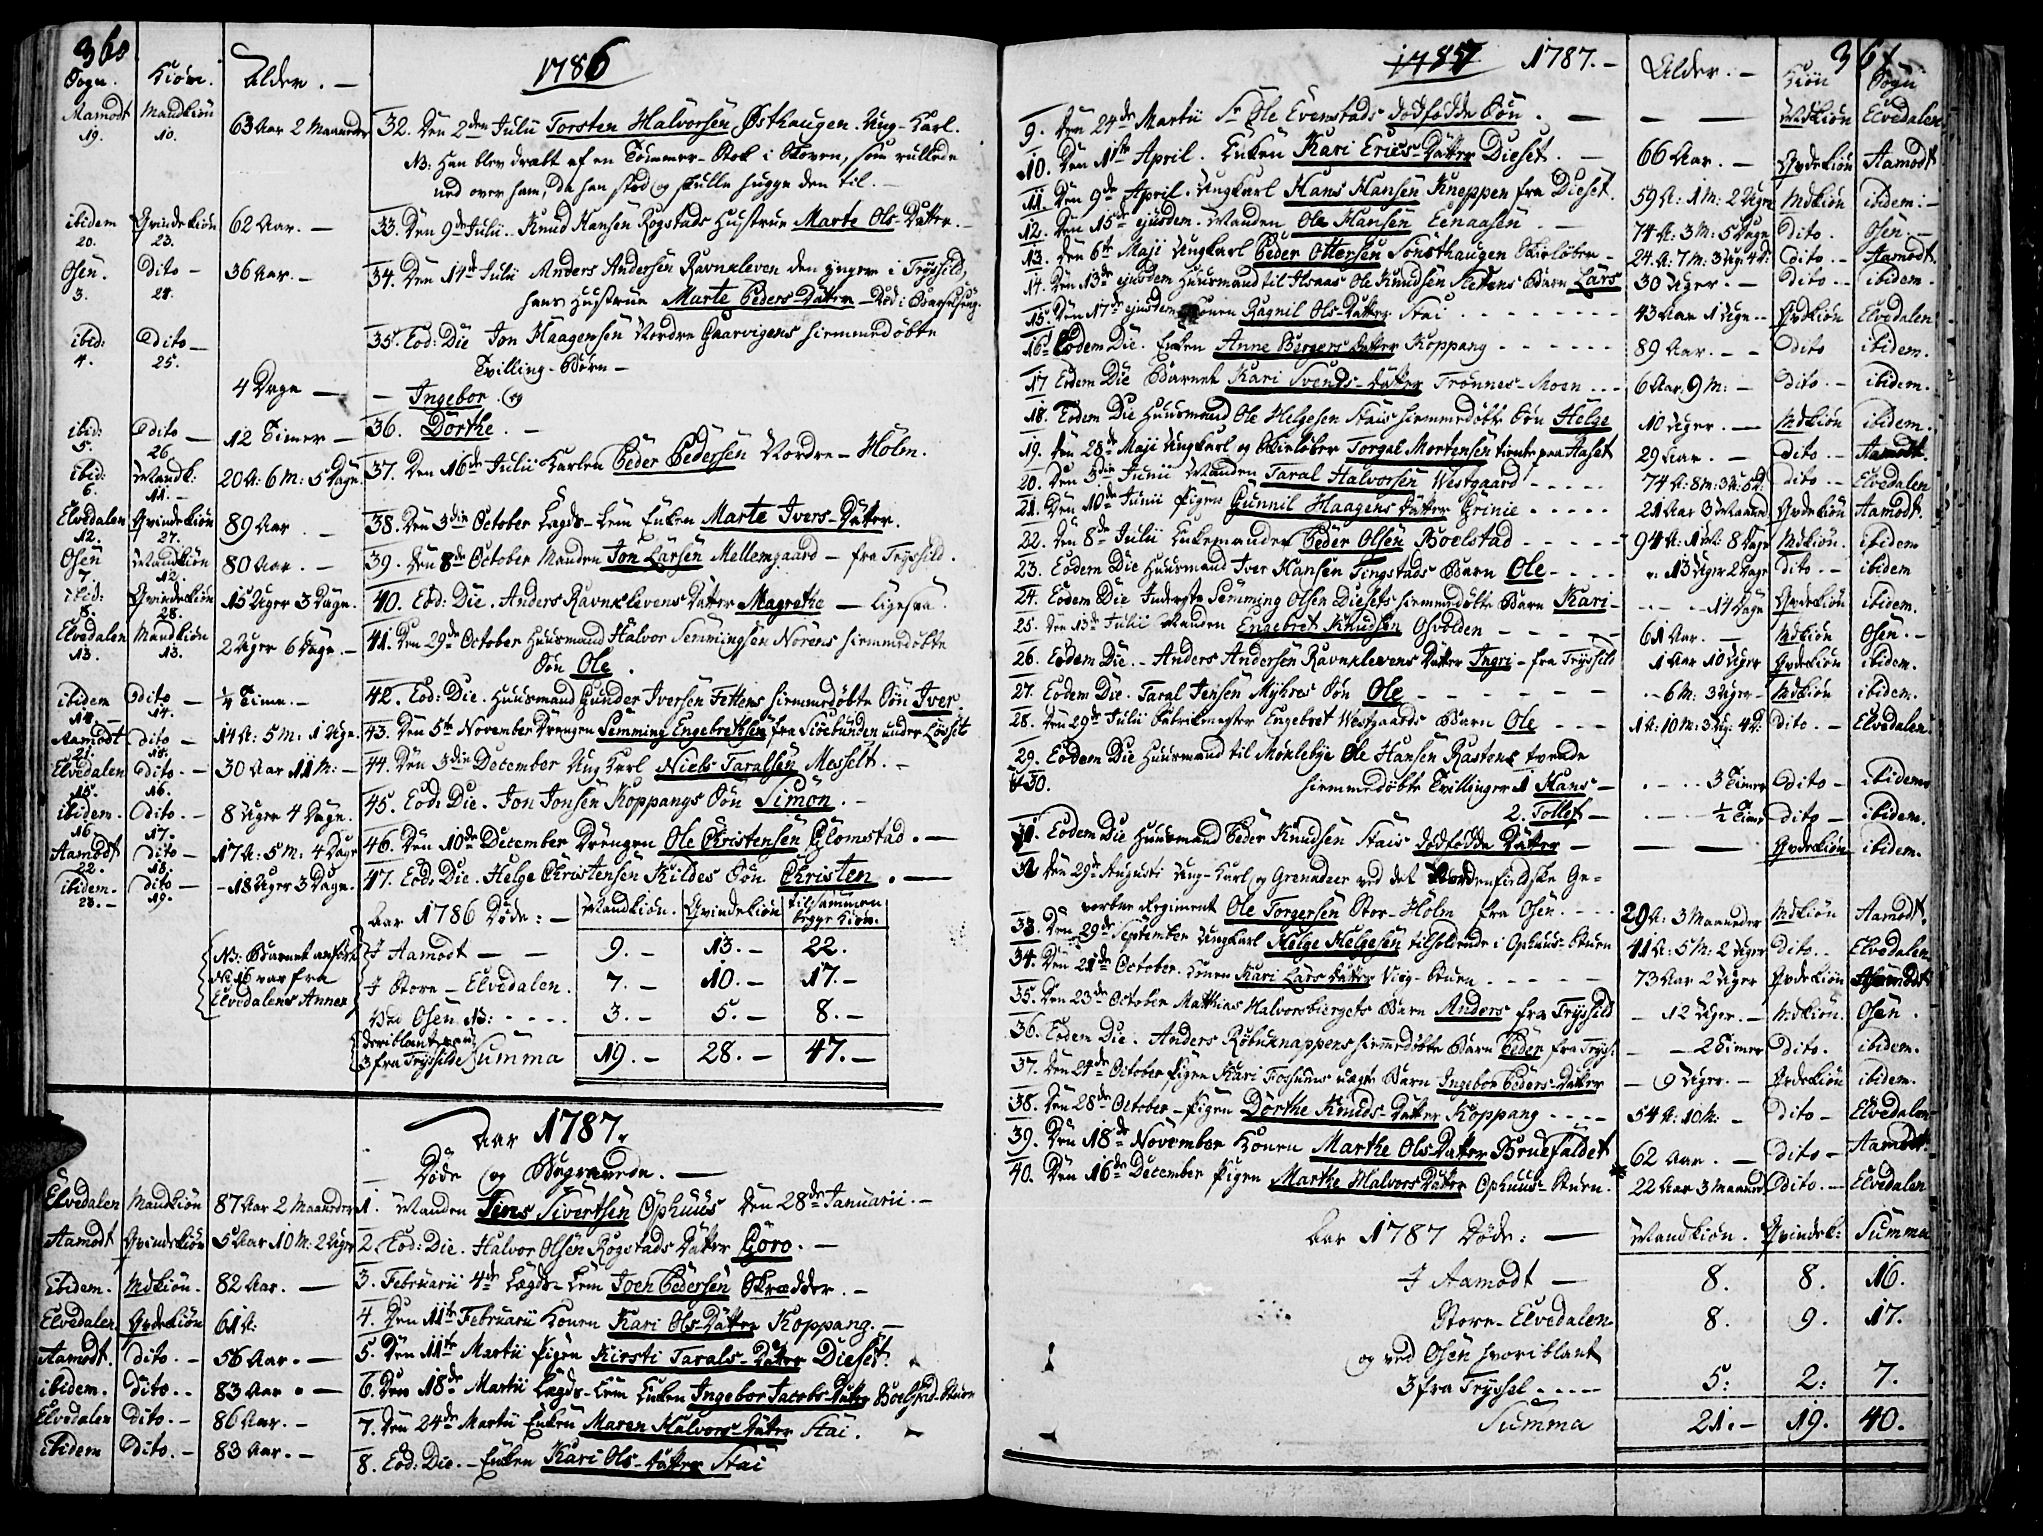 360
1786
Sogn. Kiön. Alder. —
Aamodt Mandkiön 63 Aar 2 Maaneder 32. Den 2den Julii Torsten Halvorsen Østhaugen. Ung-Karl.
19. 10.
NB: Han blev dræbt af en Tömmer-Stok i Skoven, som rullede
ned over ham, da han stod og skulle hugge den til. —
ibidem Qvindekiön 62 Aar. — 33. Den 9de Julii. Knud Hansen Rogstads Hustrue Marte Ols-Datter. —
20. 23.
Osen. Dito — 36 Aar. — 34. Den 14de Julii Anders Andersen Ravnkleven den yngere i Tryssild,
3. 24.
hans Hustrue Marte Peders-Datter — Död i Barselseng.
ibid: Dito — 35. Eod: Die Jon Haagensen Nordre Gaarvigens hiemmedöbte
4. 25.
Tvilling-Börn —
4 Dage — — Ingebor. og
ibid: Dito — 12 Timer — 36. Dorthe. —
5. 26
Ibid: Mandk: 20 A: 6 M: 5 Dage. 37. Den 16de Julii Karlen Peder Pedersen Nordre-Holm.
6. 11. —
Elvedalen Qvindekiön 89 Aar. — 38. Den 3die October Lægds-Lem Enken Marte Ivers-Datter.
12. 27.
Osen Mandkiön 80 Aar. — 39. Den 8de October Manden Jon Larsen Mellemgaard — fra Tryssild.
7. 12.
ibid: Qvindekiön 15 Uger 3 Dage. 40. Eod: Die. Anders Ravnklevens Datter Magrethe — Ligesaa.
8. 28.
Elvedalen Mandkiön 2 Uger 6 Dage. — 41. Den 29de October Huusmand Halvor Semmingsen Norens hiemmedöbte
13. 13.
Sön Ole.
ibidem Dito — ¼ Time. — 42. Eod: Die. Huusmand Gunder Iversen Fettens hiemmedöbte Sön Iver.
14. 14.
Aamodt Dito — 14 A: 5 M: 1 Uge. 43. Den 5te November Drengen Semming Engebrethsen, fra Siöebunden under Lösset
21. 15.
Elvedalen Dito. — 30 Aar 11 M: — 44. Den 3die December Ung Karl Niels Taralsen Messelt. —
15. 16.
ibidem. Dito. — 8 Uger 4 Dage. 45. Eod: Die. Jon Jonsen Koppangs Sön Simon. —
16. 17.
Aamodt Dito — 17 A: 5 M: 4 Dage 46. Den 10de December Drengen Ole Christensen Glomstad. —
22. 18.
ibidem. Dito — 18 Uger 3 Dage. 47. Eod: Die. Helge Christensen Kildes Sön Christen. —
23. — 19.
Aar 1786 Döde: — Mandkiön. Qvindekiön tilsammen begge Kiön.
NB: Barnet anfört No 16 var fra Elvedalens Annex
I Aamodt — — 9. — 13. — 22.
I Store-Elvedalen. 7. — 10. — 17. —
Ved Osen NB: 3. — 5. — 8. —
deriblant 3 fra Tryssild Summa 19. — 28. — 47. —
Aar 1787.
Döde og Begravede. —
Elvedalen Mandkiön 87 Aar 2 Maaneder 1. Manden Jens Sivertsen Ophuus Den 28de Januarii. —
Aamodt Qvindekiön 5 Aar 10 M: 2 Uger 2. Eod: Die. Halvor Olsen Rogstads Datter Göro. —
ibidem. Mdkiön. 82 Aar. — 3. Februarii 4de Lægds-Lem Joen Pedersen Skrædder. —
Elvedalen Qvdekiön 61 A: 4. Den 11te Februarii Konen Kari Ols-Datter Koppang. —
Aamodt. Dito. — 56 Aar. — 5. Den 11te Martii Pigen Kirsti Tarals-Datter Dieset.
ibidem. Dito. . 83 Aar. — 6. Den 18de Martii Lægds-Lem Enken Ingebor Jacobs-Datter Boelstad-Stuen
Elvedalen Dito. — 86 Aar. — 7. Den 24de Martii Enken Maren Halvors-Datter Stai.
ibidem Dito. — 83 Aar. — 8. Eod: Die. — Enken Kari Ols-Datter Stai
1787 1787. — Alder. — Kiön Sogn 361
9. Den 24de Martii Sr Ole Evenstads dödfödde Sön. — — — Mdkiön Elvedalen.
10. Den 1ste April. Enken Kari Erics Datter Dieset. — 66 Aar. — Qvdekiön Aamodt
11. Den 9de April. Ungkarl Hans Hansen Kneppen fra Dieset. 59 A: 1 M: 2 Uger Mdkiön ibidem: —
12. Den 15de ejusdem. Manden Ole Hansen Eenaasen — 74 A: 3 M: 5 Dage Dito. Osen. —
13. Den 6te Maji Ungkarl Peder Ottersen Sonsthaugen Skielöber — 24 A: 7 M: 3 Ug: 4 D: Dito. — Aamodt.
14. Den 13de ejusdem Huusmand til Hsaas Ole Knudsen Slettens Barn Lars 30 Uger. — Dito. . ibidem.
15. Den 17de ejusdem Konen Ragnil Ols-Datter Stai 43 Aar 1 Uge. — Qvdkiön Elvedalen.
16. Eodem Die. Enken Anne Bergers Datter Koppang 89 Aar. — Dito ibidem.
17 Eodem Die Barnet Kari Svends-Datter Trönnes-Moen 6 Aar 9 M: — Dito. — ibidem.
18. Eodem Die Huusmand Ole Helgesen Stais hiemmedöbte Sön Helge 10 Uger. — Mdkiön ibidem.
19. Den 28de Maji Ungkarl og Skielöber Torgal Mortensen tiente paa Aaset 29 Aar. — Dito. — Aamodt.
20. Den 3die Junii Manden Taral Halvorsen Westgaard 74 A: 8 M: 3 U: 5 D: Dito. . Elvedalen
21. Den 10de Junii Pigen Gunnil Haagens Datter Grinie 21 Aar 3 Maaned Qvdekiön Aamodt.
22. Den 8de Julii Enkemanden Peder Olsen Boelstad 94 A: 1 M: 8 Dage Mdkiön. ibidem
23. Eodem Die Huusmand Iver Hansen Tingstads Barn Ole 13 Uger 2 Dage Dito. — ibidem
24. Eodem Die Inderste Semming Olsen Diesets hiemmedöbte Barn Kari 14 Dage Qvdekiön ibidem.
25. Den 13de Julii Manden Engebret Knudsen Osvolden 61 Aar. — Mdkiön Osen. —
26. Eodem Die. — Anders Andersen Ravnklevens Datter Ingri — fra Tryssild 1 Aar 10 Uger Qvdekiön ibidem.
27. Eodem Die. Taral Jensen Myhres Sön Ole 6 M: 3 Uger — Mdkiön ibidem.
28. Den 29de Julii Fabrikmester Engebret Westgaards Barn Ole 1 A: 10 M: 3 Ug: 4 D: Dito. — Elvedalen.
29. Eodem Die Huusmand til Moklebye Ole Hansen Rastens tvende
& 30. hiemmedöbte Tvillinger 1 Hans — 3 Timer Dito — ibidem
2. Tollef — ½ Time Dito — ibidem.
31. Eodem Die Huusmand Peder Knudsen Stais dödfödde Datter — — — Qvdekiön ibidem.
32. Den 29de Augusti Ung-Karl og Grenadeer ved det Nordenfieldske Ge-
vorbne Regiment Ole Torgersen Stor-Holm fra Osen. 29 A: 3 Maaneder Mdkiön Aamodt.
33. Den 29de September Ungkarl Helge Helgesen tilholdende i Ophuus-Stuen 41 A: 5 M: 2 Uger Dito. . Elvedalen
34. Den 21de October. Konen Kari Lars Datter Viig-Stuen 73 Aar 2 Uger Qvdekiön Aamodt
35. Den 23de October Matthias Halvorsbiergets Barn Anders fra Tryssild — 12 Uger. — Mdkiön. Osen.
36. Eodem Die. Anders Röbuknappens hiemmedöbte Barn Peder fra Tryss: — 2 Timer Dito. ibidem.
37. Den 24de October Pigen Kari Fossums uægte Barn Ingebor Peders-Datter — 9 Uger. — Qvdekiön ibidem.
38. Den 28de October — Pigen Dorthe Knuds-Datter Koppang 54 A: 10 M: — Dito — Elvedalen
39. Den 18de November Konen Marthe Ols-Datter Bruefaldet 62 Aar. — Dito — Aamodt.
40. Den 16de December Pigen Marthe Halvors Datter Ophuus-Stuen. 22 Aar 3 Maaned Dito. — Elvedalen
Aar 1787 Döde: — Mandkiön. Qvindek: Summa
I Aamodt — 8. 8. 16.
Store-Elvedalen 8. 9. 17.
og ved Osen hvoriblant
3 fra Tryssel 5: 2: 7.
Summa 21. — 19. 40.